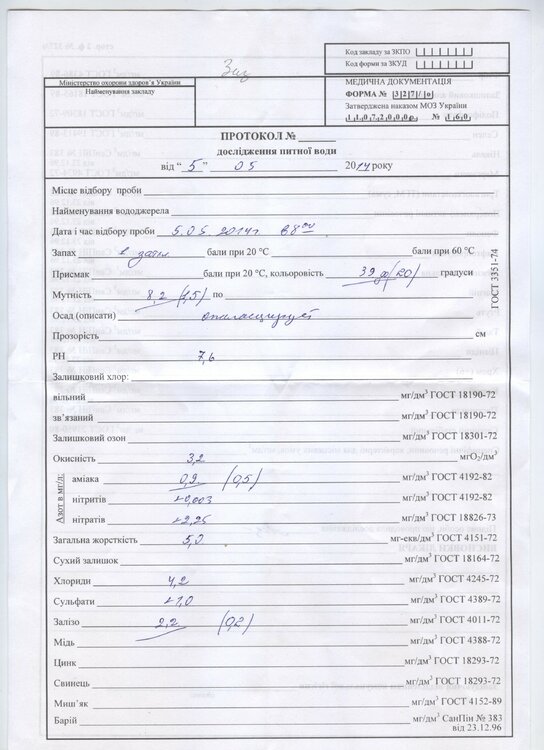 Код закладу за ЗКПО
Код форми за ЗКУД
Міністерство охорони здоров'я України
Найменування закладу
МЕДИЧНА ДОКУМЕНТАЦІЯ
ФОРМА № 327/о
Затверджена наказом МОЗ України
11072000р. № 160
ПРОТОКОЛ №
дослідження питної води
від “ 5 ” 05 2014 року
Місце відбору проби
Найменування вододжерела
Дата і час відбору проби 5.05.2014г. в 8 00
Запах бали при 20 °С бали при 60 °С
Присмак бали при 20 °С, кольоровість 39 (20) градуси
Мутність 8,2 (1,5) по
ГОСТ 3351-74
Осад (описати) опалесцирует
Прозорість см
РН 7,6
Залишковий хлор:
вільний мг/дм³ ГОСТ 18190-72
зв'язаний мг/дм³ ГОСТ 18190-72
Залишковий озон мг/дм³ ГОСТ 18301-72
Окисність 3,2 мгО₂/дм³
Азот в мг/л:
аміака 0,9 (0,5) мг/дм³ ГОСТ 4192-82
нітритів 0,003 мг/дм³ ГОСТ 4192-82
нітратів 2,25 мг/дм³ ГОСТ 18826-73
Загальна жорсткість 5,0 мг-екв/дм³ ГОСТ 4151-72
Сухий залишок мг/дм³ ГОСТ 18164-72
Хлориди 4,2 мг/дм³ ГОСТ 4245-72
Сульфати 1,0 мг/дм³ ГОСТ 4389-72
Залізо 2,2 (0,2) мг/дм³ ГОСТ 4011-72
Мідь мг/дм³ ГОСТ 4388-72
Цинк мг/дм³ ГОСТ 18293-72
Свинець мг/дм³ ГОСТ 18293-72
Миш'як мг/дм³ ГОСТ 4152-89
Барій мг/дм³ СанПін № 383
від 23.12.96